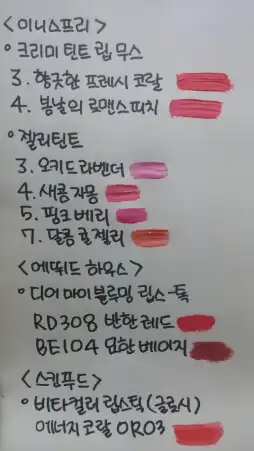 <이니스프리>
○ 크리미 틴트 립 무스
3. 향긋한 프레시 코랄
4. 봄날의 로맨스피치
○ 젤리틴트
3. 오키드라벤더
4. 새콤자몽
5. 핑크베리
7. 달콤귤젤리
<에뛰드 하우스>
○ 디어 마이 블루밍 립스-톡
RD308 반한레드
BE104 묘한 베이지
<스킨푸드>
○ 비타컬러 립스틱(글로시)
에너지 코랄 OR03